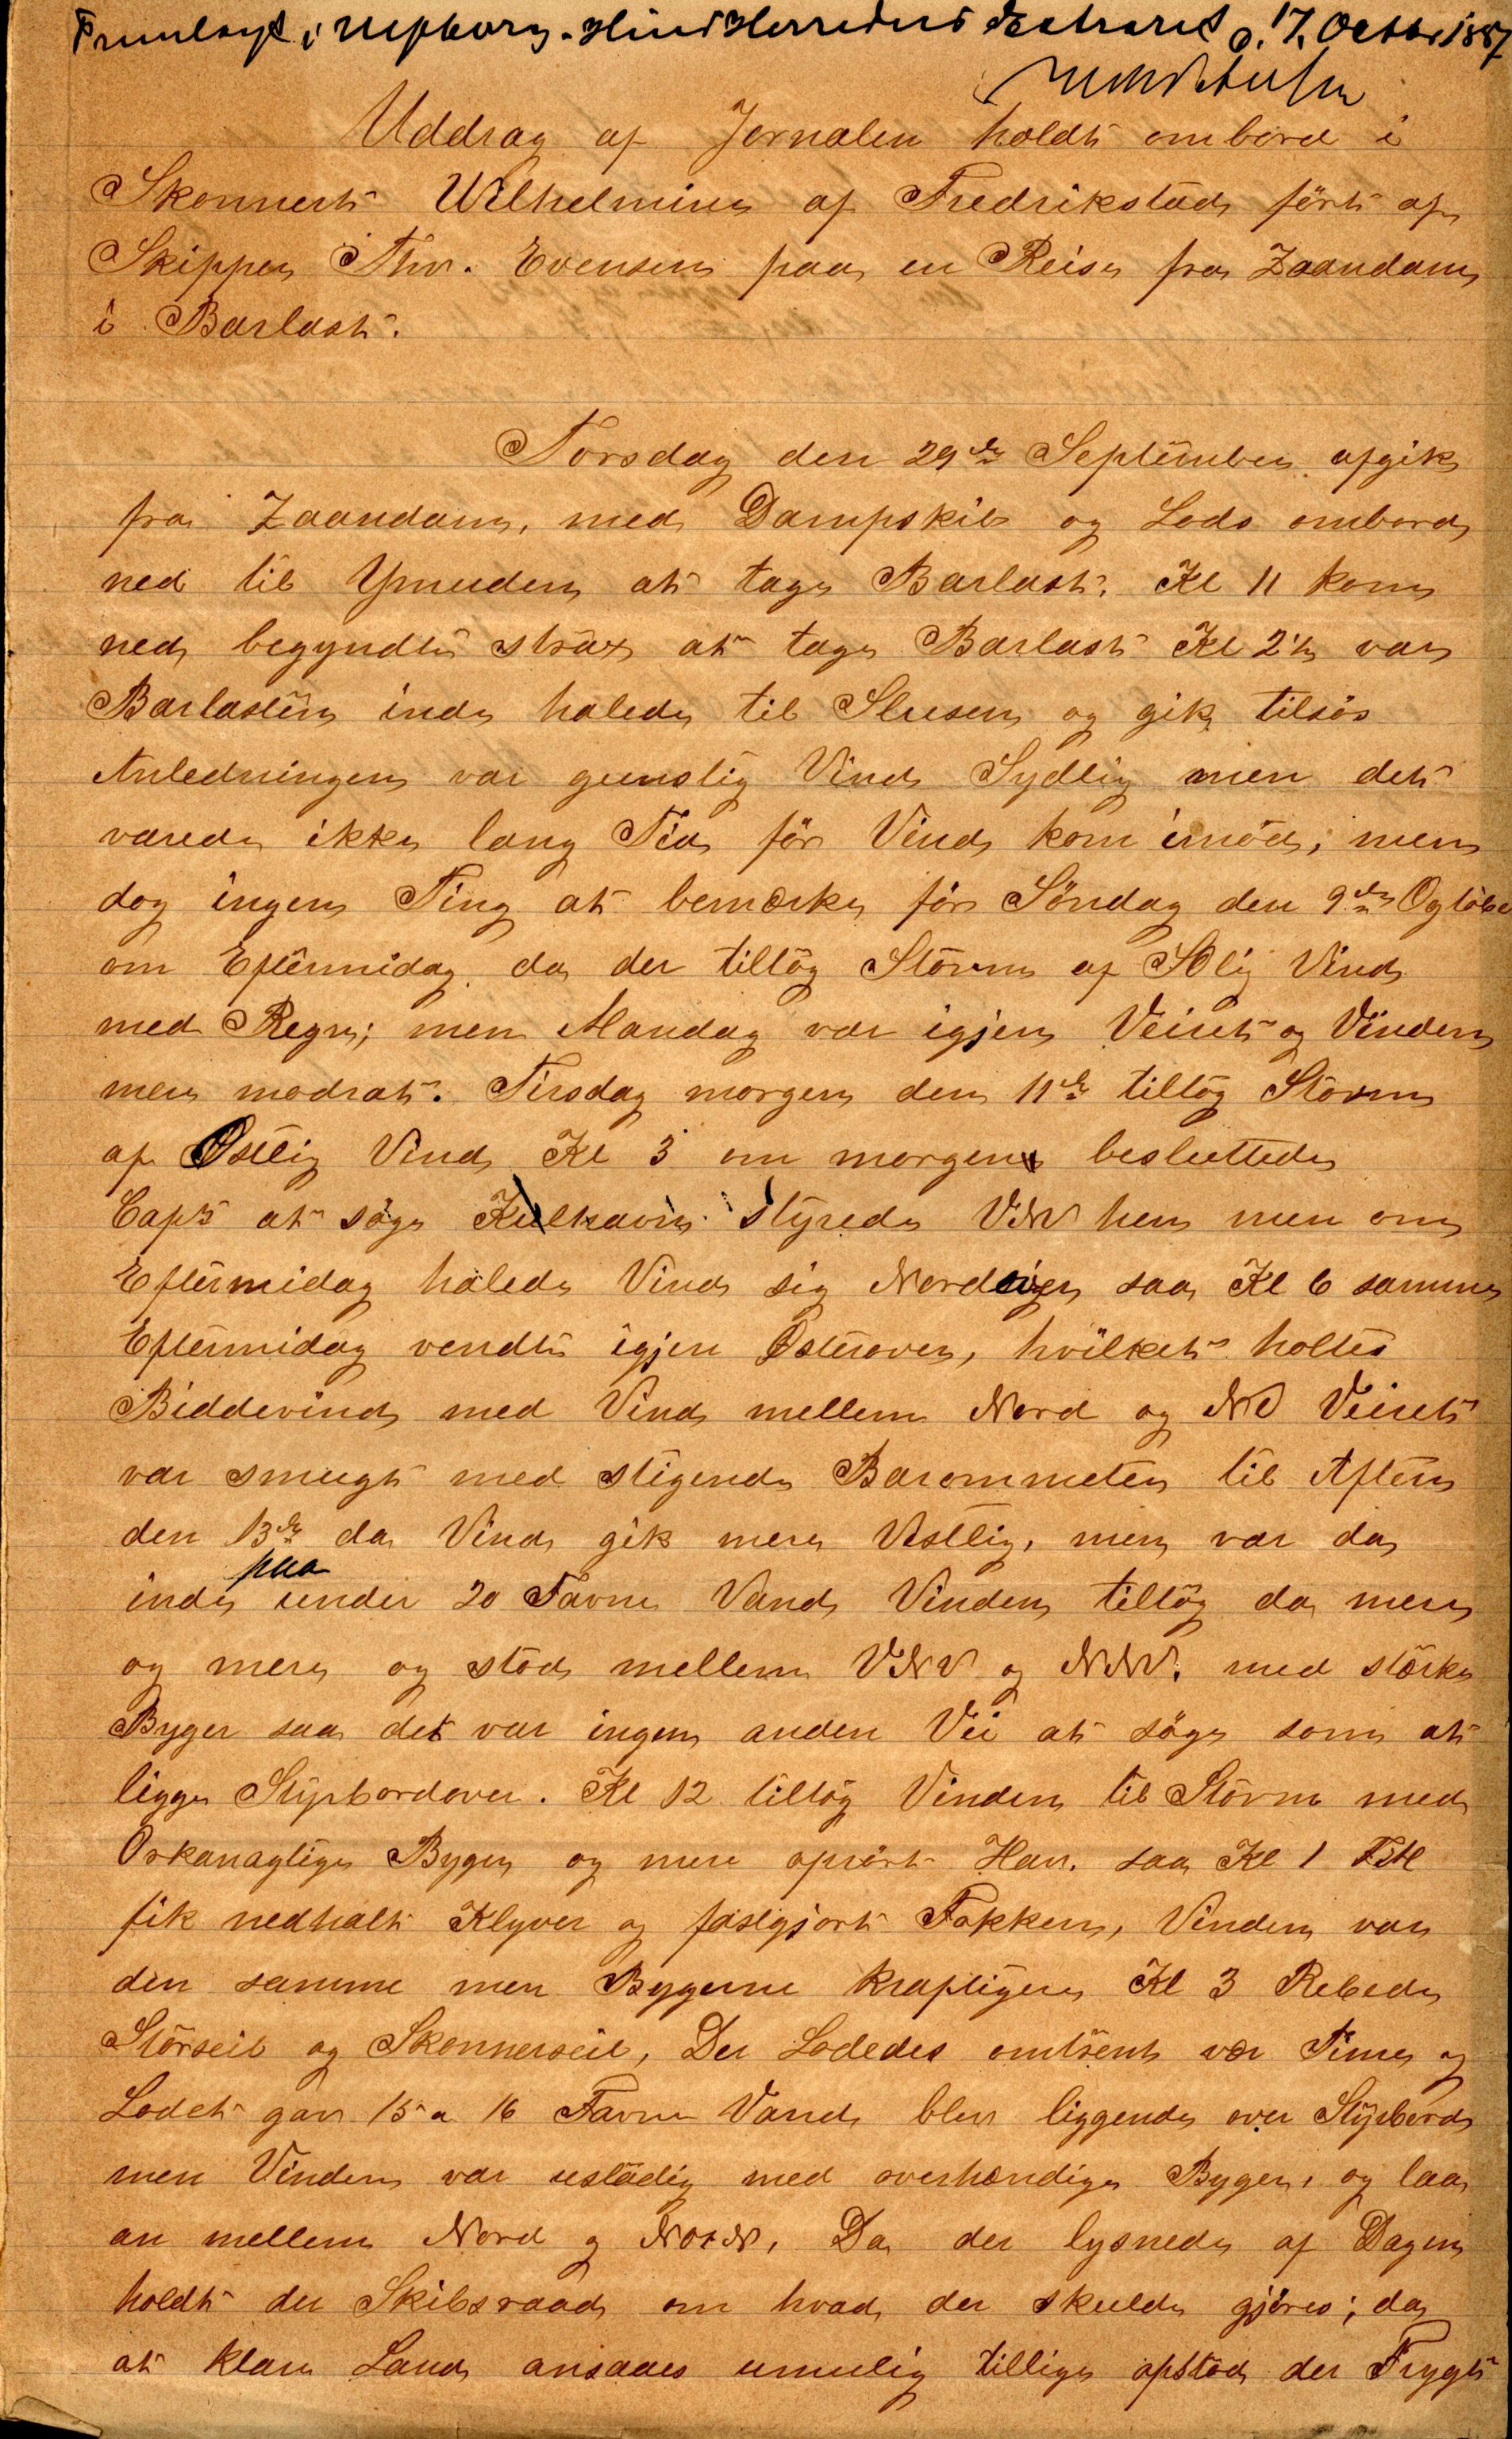 Fremlagt i Ulfborg-Hind Herreders Extraret d. 17. Octbr 1887
Uddrag af Jornalen holdt ombord i
Skonnert Wilhelmine af Fredrikstad ført af
Skipper Thv. Evensen paa en Reise fra Zaandam
i Barlast.
Torsdag den 29de September afgik
fra Zaandam, med Dampskib og Lods ombord
ned til Ymuden at tage Barlast. Kl 11 kom
ned begyndte strax at tage Barlast Kl 2½ var
Barlasten inde halede til Slusen og gik tilsøs
Anledningen var gunstig Vind Sydlig men det
varede ikke lang Tid før Vind kom imod; men
dog ingen Ting at bemærke før Søndag den 9de Ogtober
om Eftermidag da der tiltog Storm af SOlig Vind
med Regn; men Mandag var igjen Veiret og Vinden
mere modrat. Tirsdag morgen den 11te tiltog Storm
af Østlig Vind Kl 3 om morgen besluttede
Capt at søge Kulhavn styrede VNV hen men om
Eftermidag halede Vind sig Nordligen saa Kl 6 samme
Eftermidag vendte igjen Østerover, hvilket holtes
Biddevind med Vind mellem Nord og NO Veiret
var smugt med stigende Barommeter til Aften
den 13de da Vind gik mere Vestlig, men var da
inde paa under 20 Favne Vand Vinden tiltog da mere
og mere og stod mellem VNV og NNV. med stærke
Byger saa det var ingen anden Vei at søge som at
ligge Styrbordover. Kl 12 tiltog Vinden til Storm med
Orkanagtige Byger og mere oprørt Hav. saa Kl 1
fik nedhalt Klyver og fastgjort Fokken, Vinden var
den samme men Bygerne kraftigere Kl 3 Rebede
Storseil og Skonnerseil, Der Lodedes omtrent vær Time og
Lodet gav 15 a 16 Favne Vand blev liggende over Styrbord
men Vinden var ustadig med overhændige Byger, og laa
an mellem Nord og NotN. Da der lysnede af Dagen
holdt der Skibsraad om hvad der skulde gjøres; da
at klare Land ansaaes umulig tillige opstod der Frygt